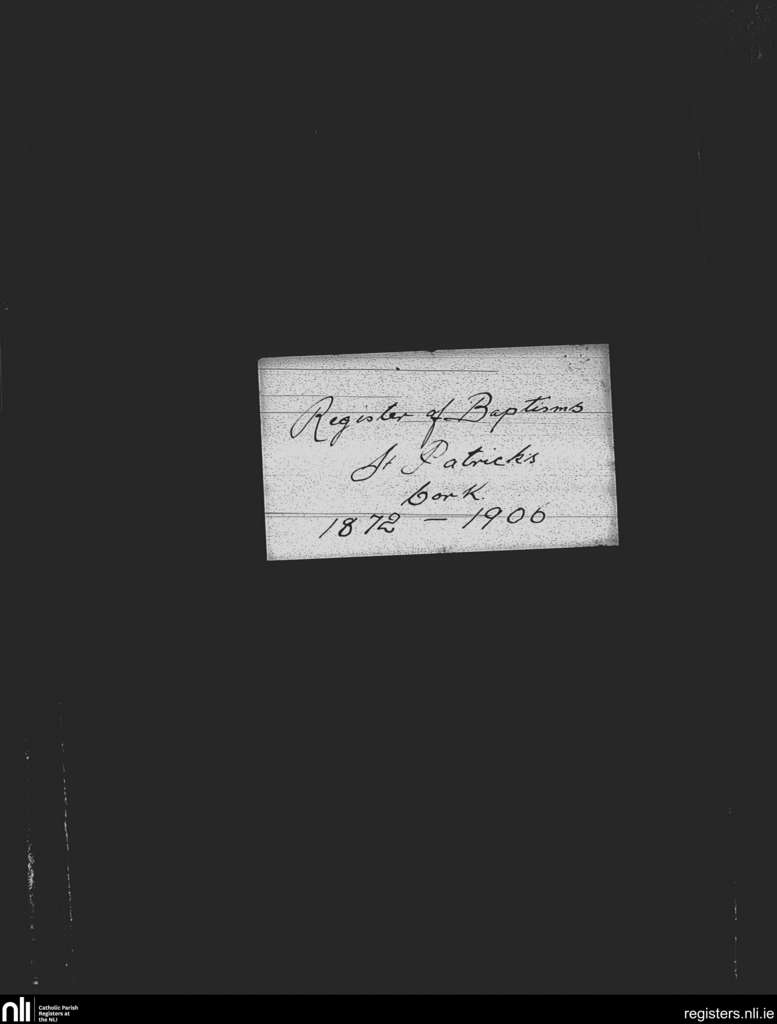 Register of Baptisms
St Patrick's
Cork.
1872 — 1906
nli
Catholic Parish
Registers at
the NLI
registers.nli.ie